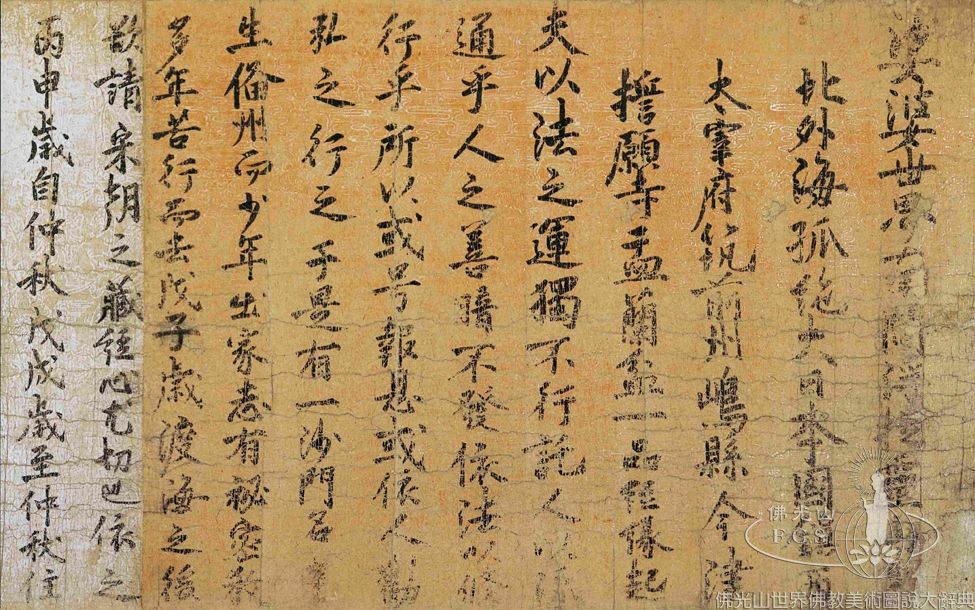 娑婆世界南閻浮提
此外海孤絶大日本國
大宰府筑前州嶋縣今津
誓願寺盂蘭盆一品経縁起
夫以法之運獨不行託人以
通乎人之善暗不發依法以修
行乎所以或号報恩或依人勸
弘之行之于是有一沙門名
生俻州而少年出家志有祕密
多年苦行而去戊子歳渡海之後
欲請宋朝之藏経心尤切也依之
丙申歳自仲秋戊戌歳至仲秋住
佛光山
F.G.S.
佛光山世界佛教美術圖說大辭典